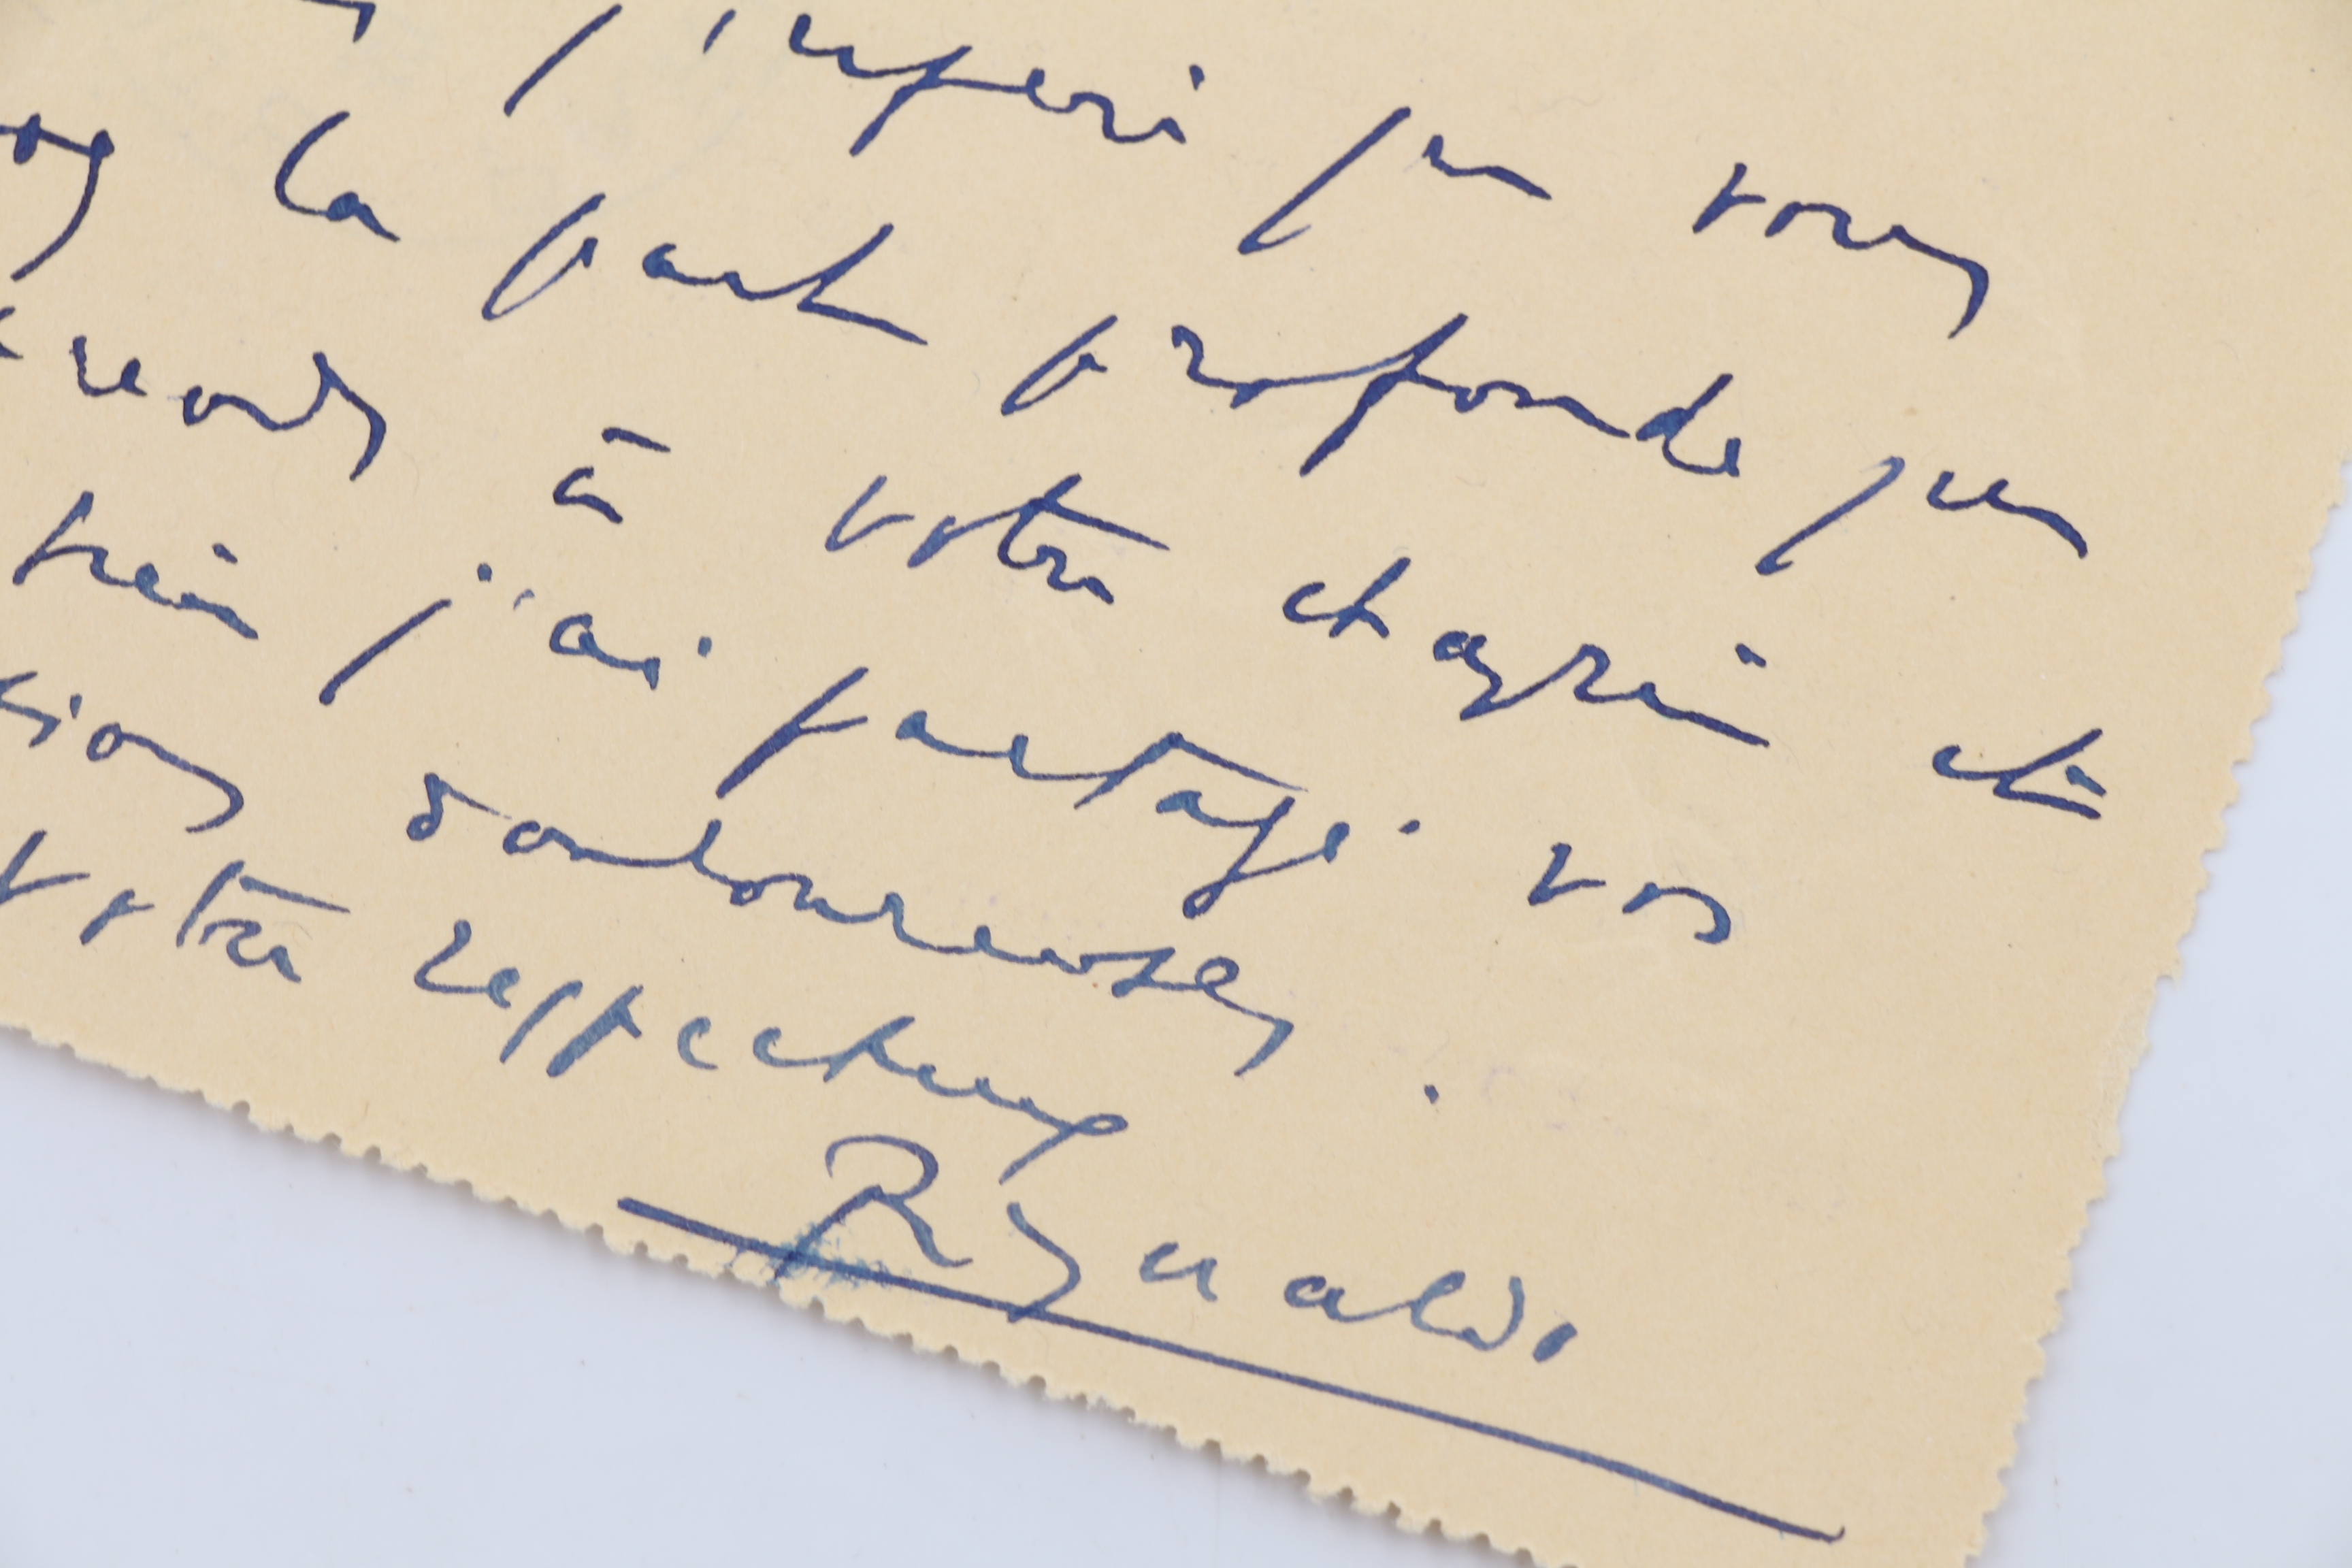 j'espère que vous
la part profonde que
prends à votre chagrin et
j'ai partagé vos
douloureuses.
votre respectueux
Reynaldo